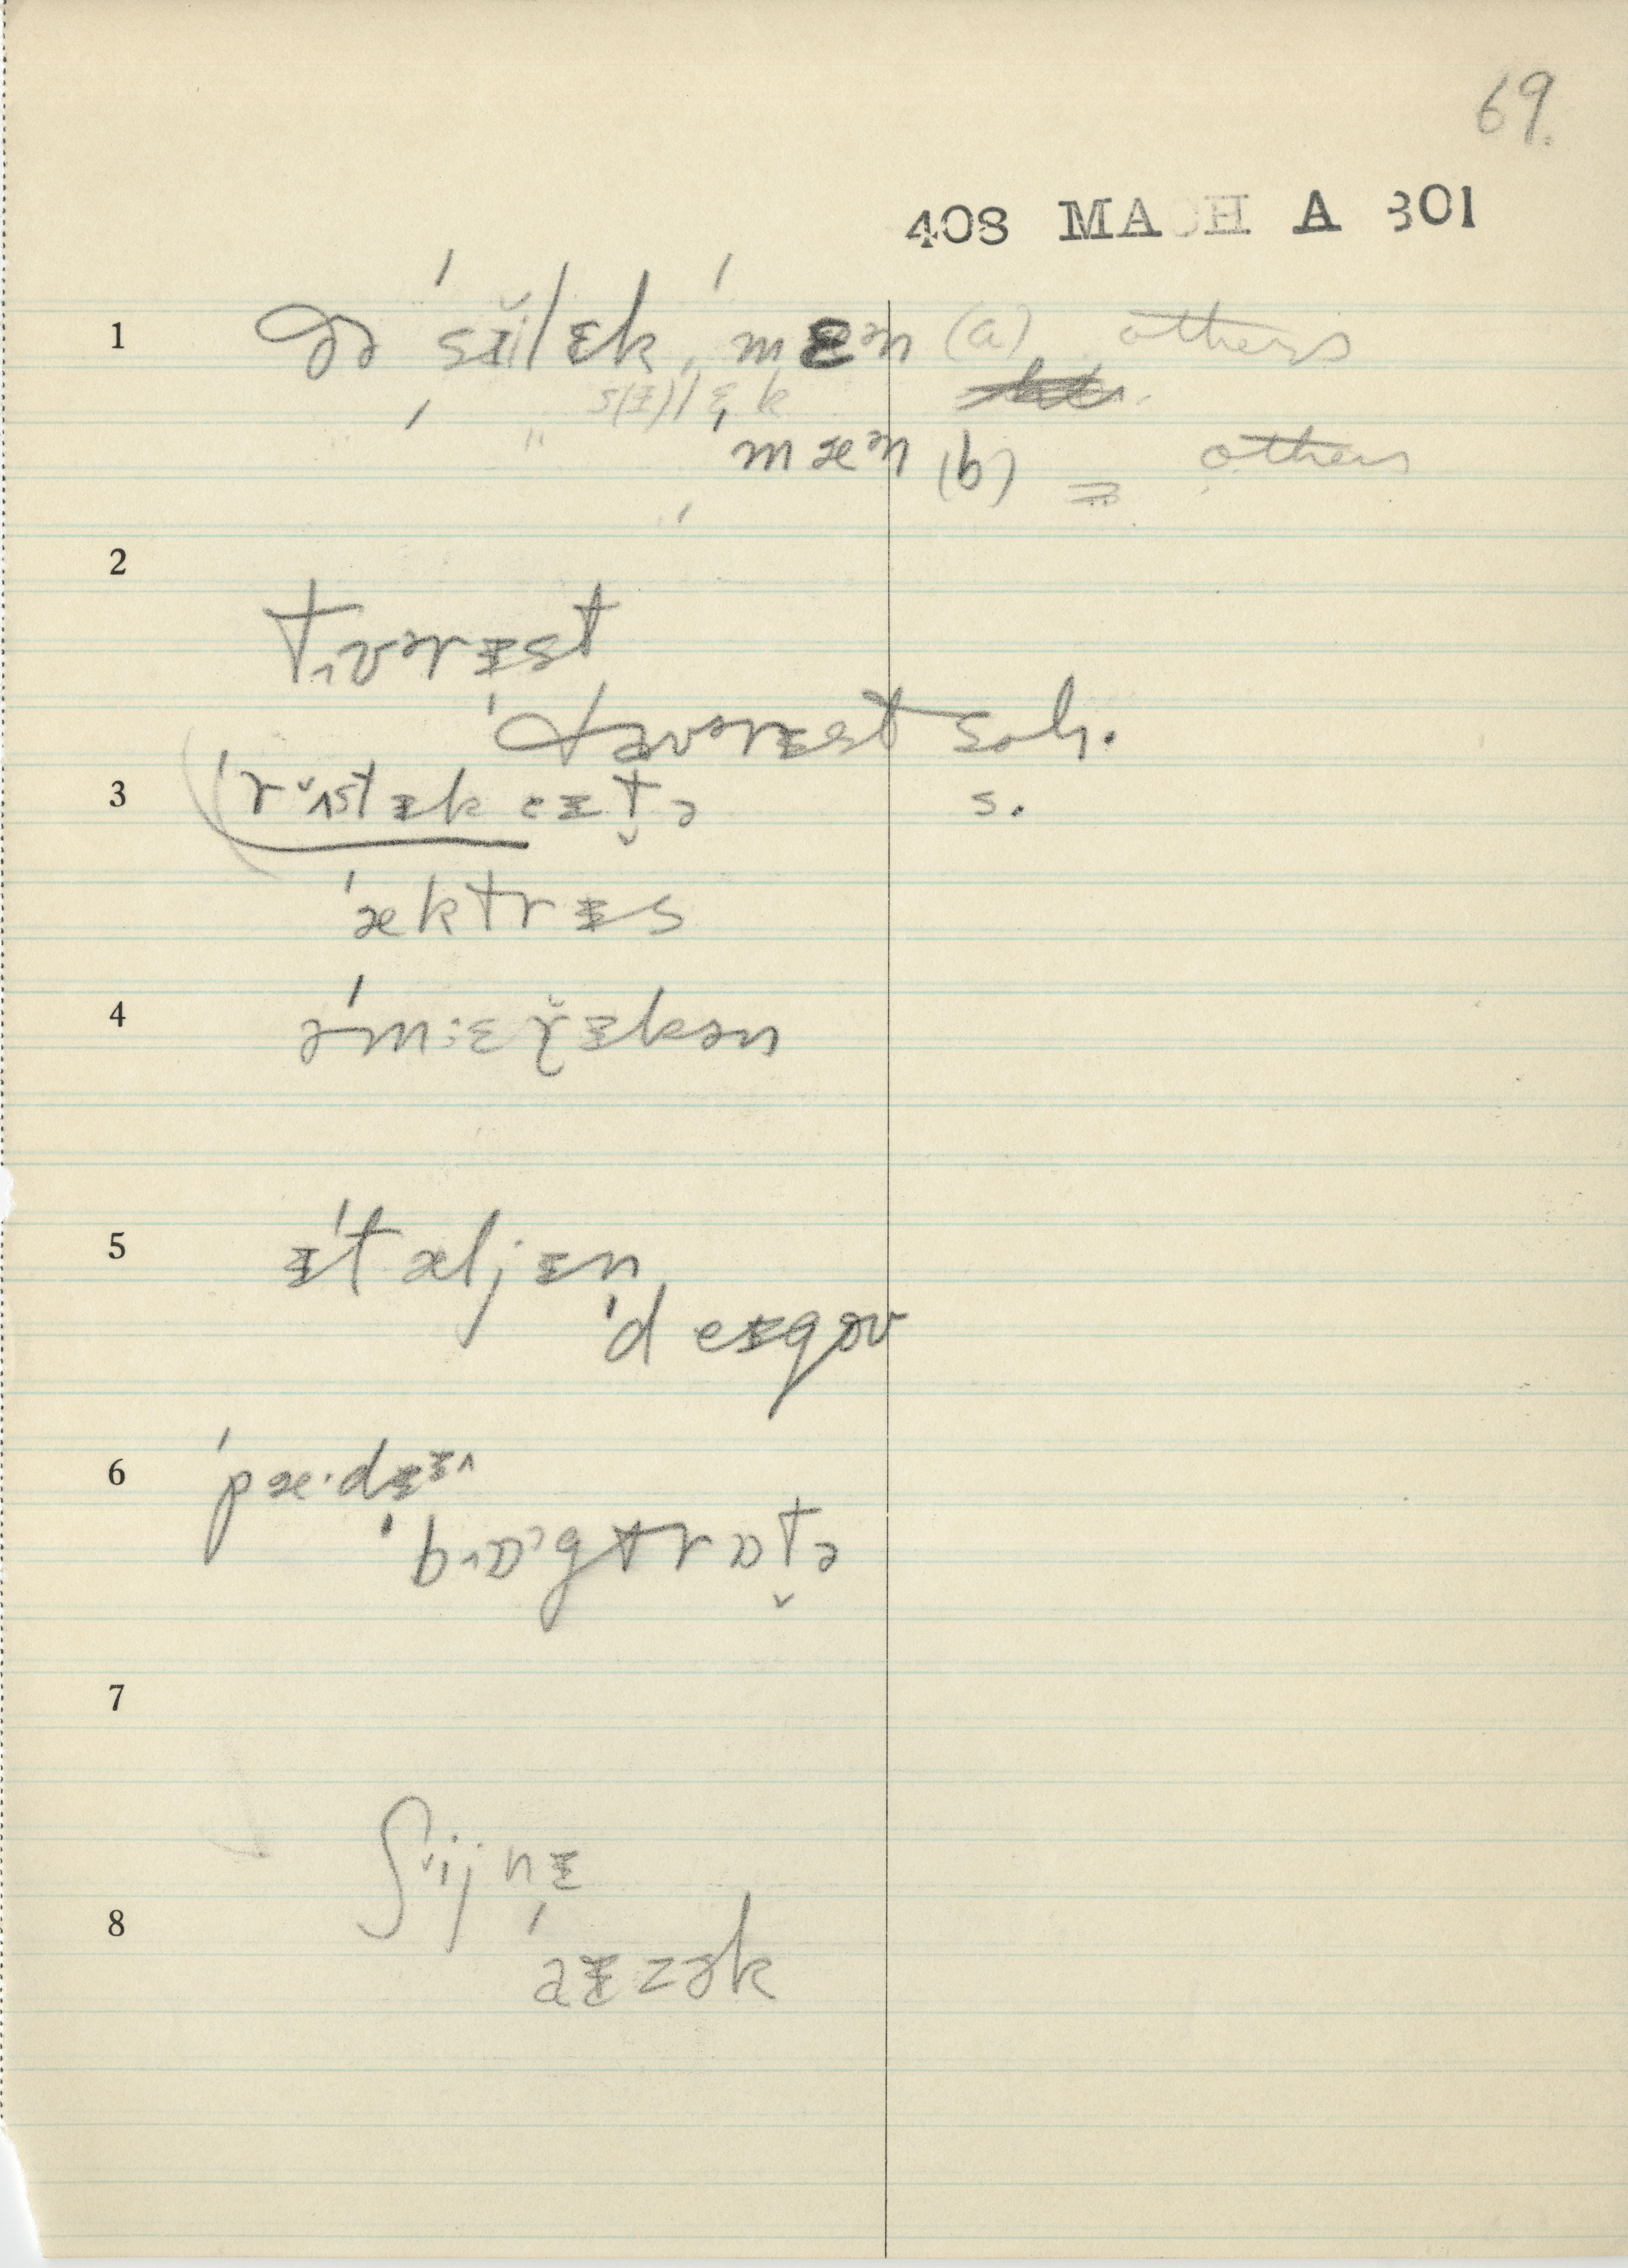 69.
408 MACH A 301
1 ðə ˈsɪ̆ilɛk ˈmɛᵊn (a) others
" " s(ɪ)lɛk
ˈmæᵊn (b) others
2
tʌvərɪst
ˈtavərɪst sah.
3 ˈrᵿstɪkeɪt̬ə s.
ˈæktrɪs
4 əˈmɛr̆ɪkən
5 ɪˈtæljɪn
ˈdeɪgəv
6 ˈpæˑdɪ
ˈbɒgtrɒt̬ə
7
ʃijnɪ
8
ˈaɪzək